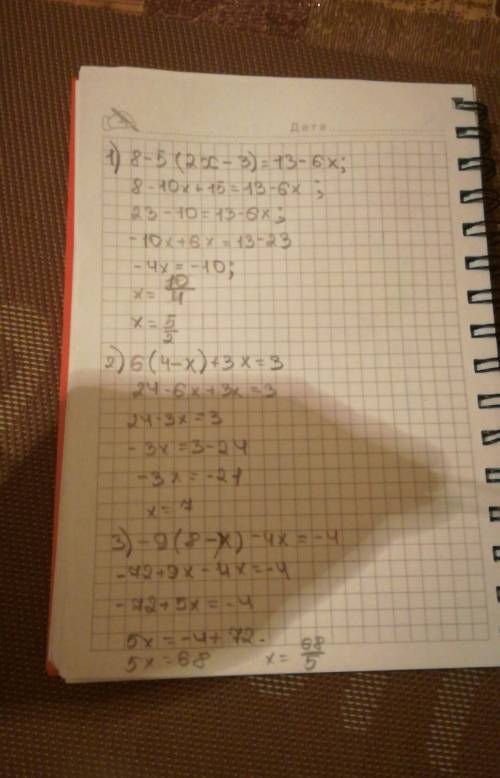 Дата
1) 8-5(2x-3)=13-6x;
8-10x+15=13-6x;
23-10=13-6x;
-10x+6x=13-23
-4x=-10;
x=10/4
x=5/2
2) 6(4-x)+3x=3
24-6x+3x=3
24-3x=3
-3x=3-24
-3x=-21
x=7
3) -9(8-x)-4x=-4
-72+9x-4x=-4
-72+5x=-4
5x=-4+72.
5x=68 x=68/5